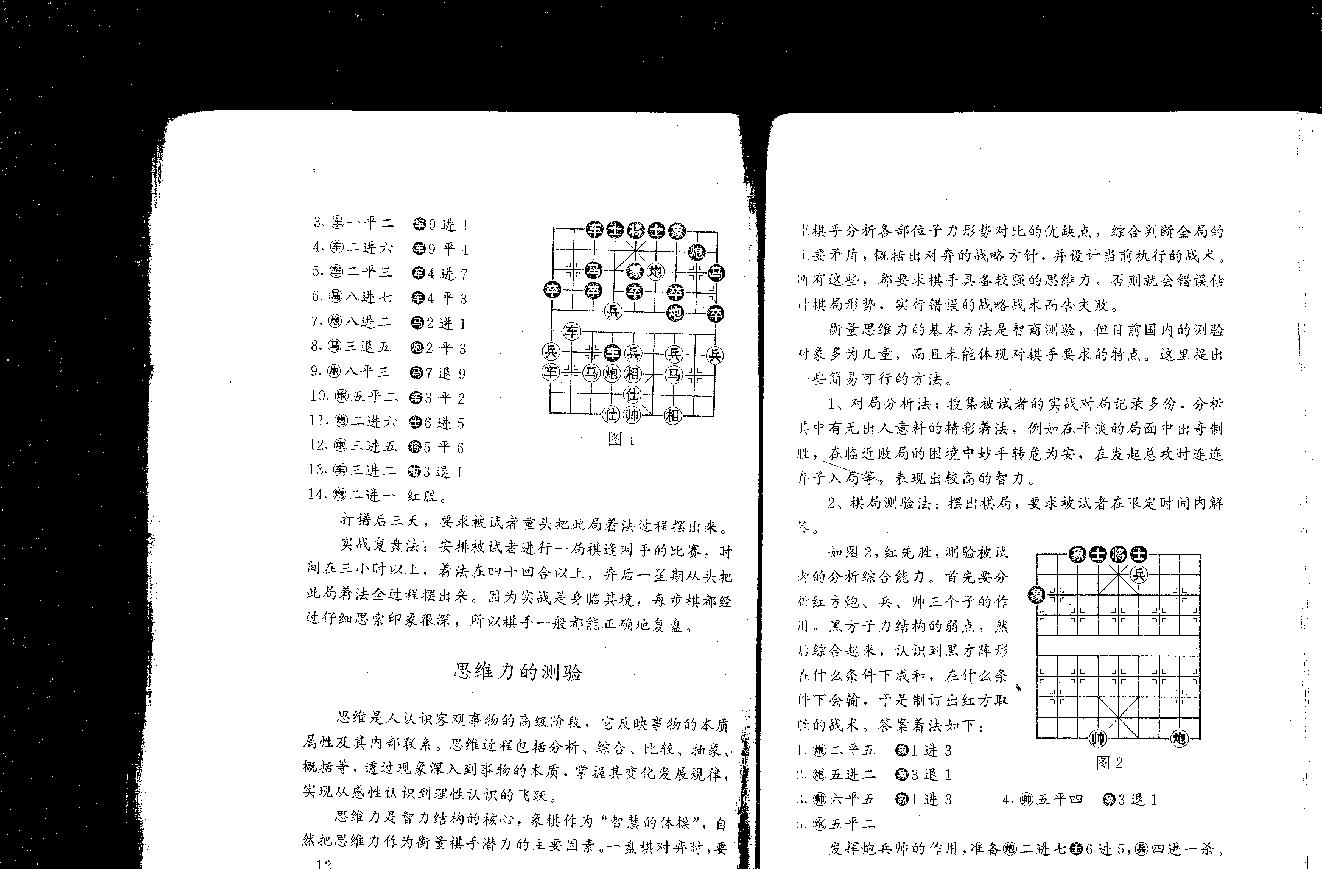 3. 车一平二 车9进1
4. 车二进六 车9平4
5. 车二平三 车4进7
6. 马八进七 车4平3
7. 炮八进二 马2进1
8. 马三退五 炮2平3
9. 炮八平三 马7退9
10. 炮五平二 车3平2
11. 炮二进六 士6进5
12. 车三进五 将5平6
13. 炮三进二 炮3退1
14. 炮二进一 红胜。
图1
打谱后三天，要求被试者重头把此局着法过程摆出来。
实战复盘法：安排被试者进行一局棋逢对手的比赛，时
间在三小时以上，着法在四十回合以上，弈后一星期从头把
此局着法全过程摆出来。因为实战是身临其境，每步棋都经
过仔细思索印象很深，所以棋手一般都能正确地复盘。
思维力的测验
思维是人认识客观事物的高级阶段，它反映事物的本质
属性及其内部联系。思维过程包括分析、综合、比较、抽象、
概括等，透过现象深入到事物的本质，掌握其变化发展规律，
实现从感性认识到理性认识的飞跃。
思维力是智力结构的核心，象棋作为“智慧的体操”，自
然把思维力作为衡量棋手潜力的主要因素。一盘棋对弈时，要
12
棋手分析各部位子力形势对比的优缺点，综合判断全局的
主要矛盾，概括出对弈的战略方针，并设计当前执行的战术。
所有这些，都要求棋手具备较强的思维力，否则就会错误估
计棋局形势，实行错误的战略战术而告失败。
衡量思维力的基本方法是智商测验，但目前国内的测验
对象多为儿童，而且未能体现对棋手要求的特点。这里提出
一些简易可行的方法。
1、对局分析法：搜集被试者的实战对局记录多份，分析
其中有无出人意料的精彩着法，例如在平淡的局面中出奇制
胜，在临近败局的困境中妙手转危为安，在发起总攻时连连
弃子入局等，表现出较高的智力。
2、棋局测验法：摆出棋局，要求被试者在限定时间内解
答。
如图2，红先胜，测验被试
者的分析综合能力。首先要分
析红方炮、兵、帅三个子的作
用。黑方子力结构的弱点，然
后综合起来，认识到黑方阵形
在什么条件下成和，在什么条
件下会输，于是制订出红方取
胜的战术。答案着法如下：
图2
1. 炮二平五 象1进3
2. 炮五进二 象3退1
3. 帅六平五 象1进3 4. 帅五平四 象3退1
5. 炮五平二
发挥炮兵帅的作用，准备炮二进七士6进5，兵四进一杀。